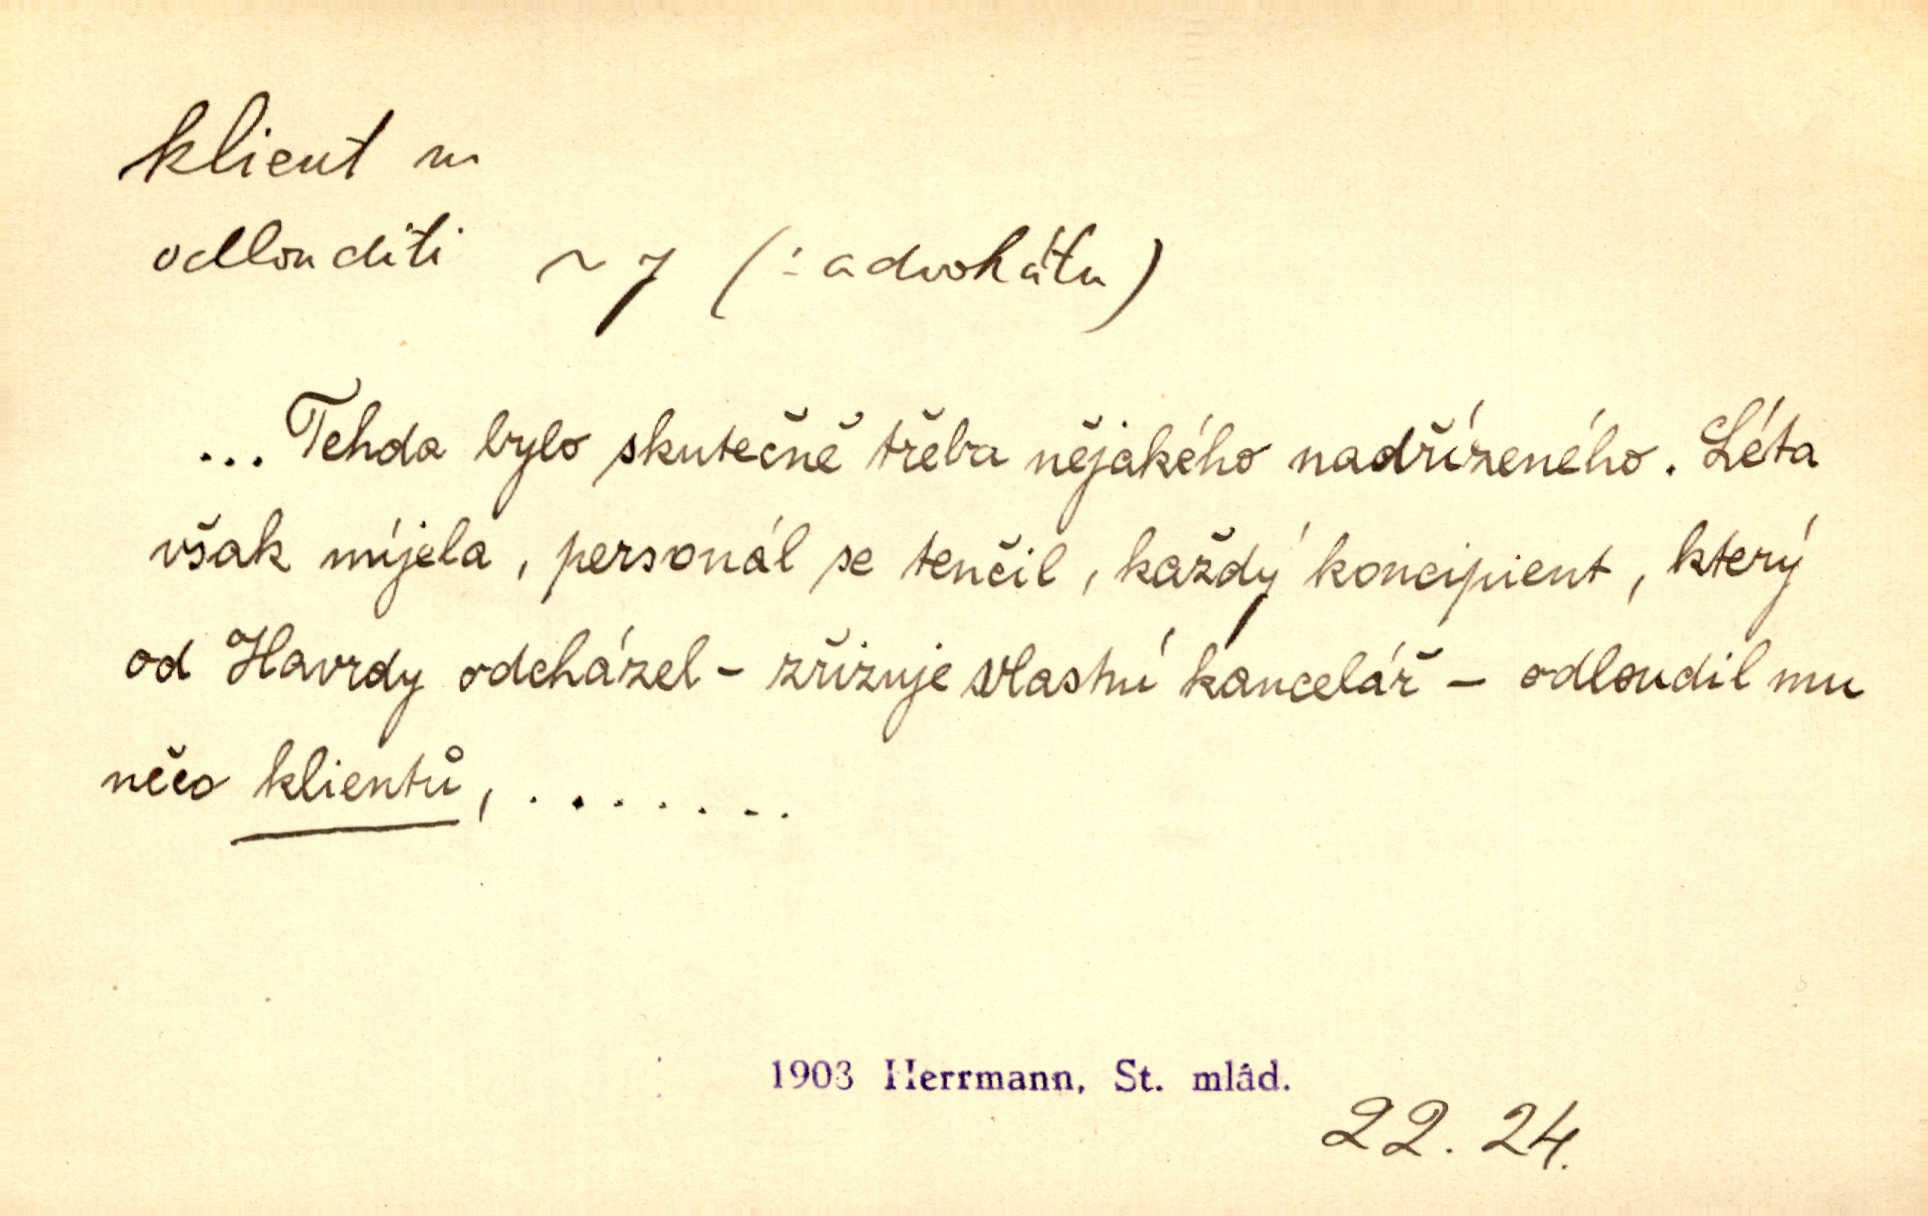 klient m
odlouditi ~y (: advokátu)
... Tehda bylo skutečně třeba nějakého nadřízeného. Léta
však míjela, personál se tenčil, každý koncipient, který
od Havrdy odcházel – zřizuje vlastní kancelář – odloudil mu
něco klientů, ........
1903 Herrmann, St. mlád.
22. 24.